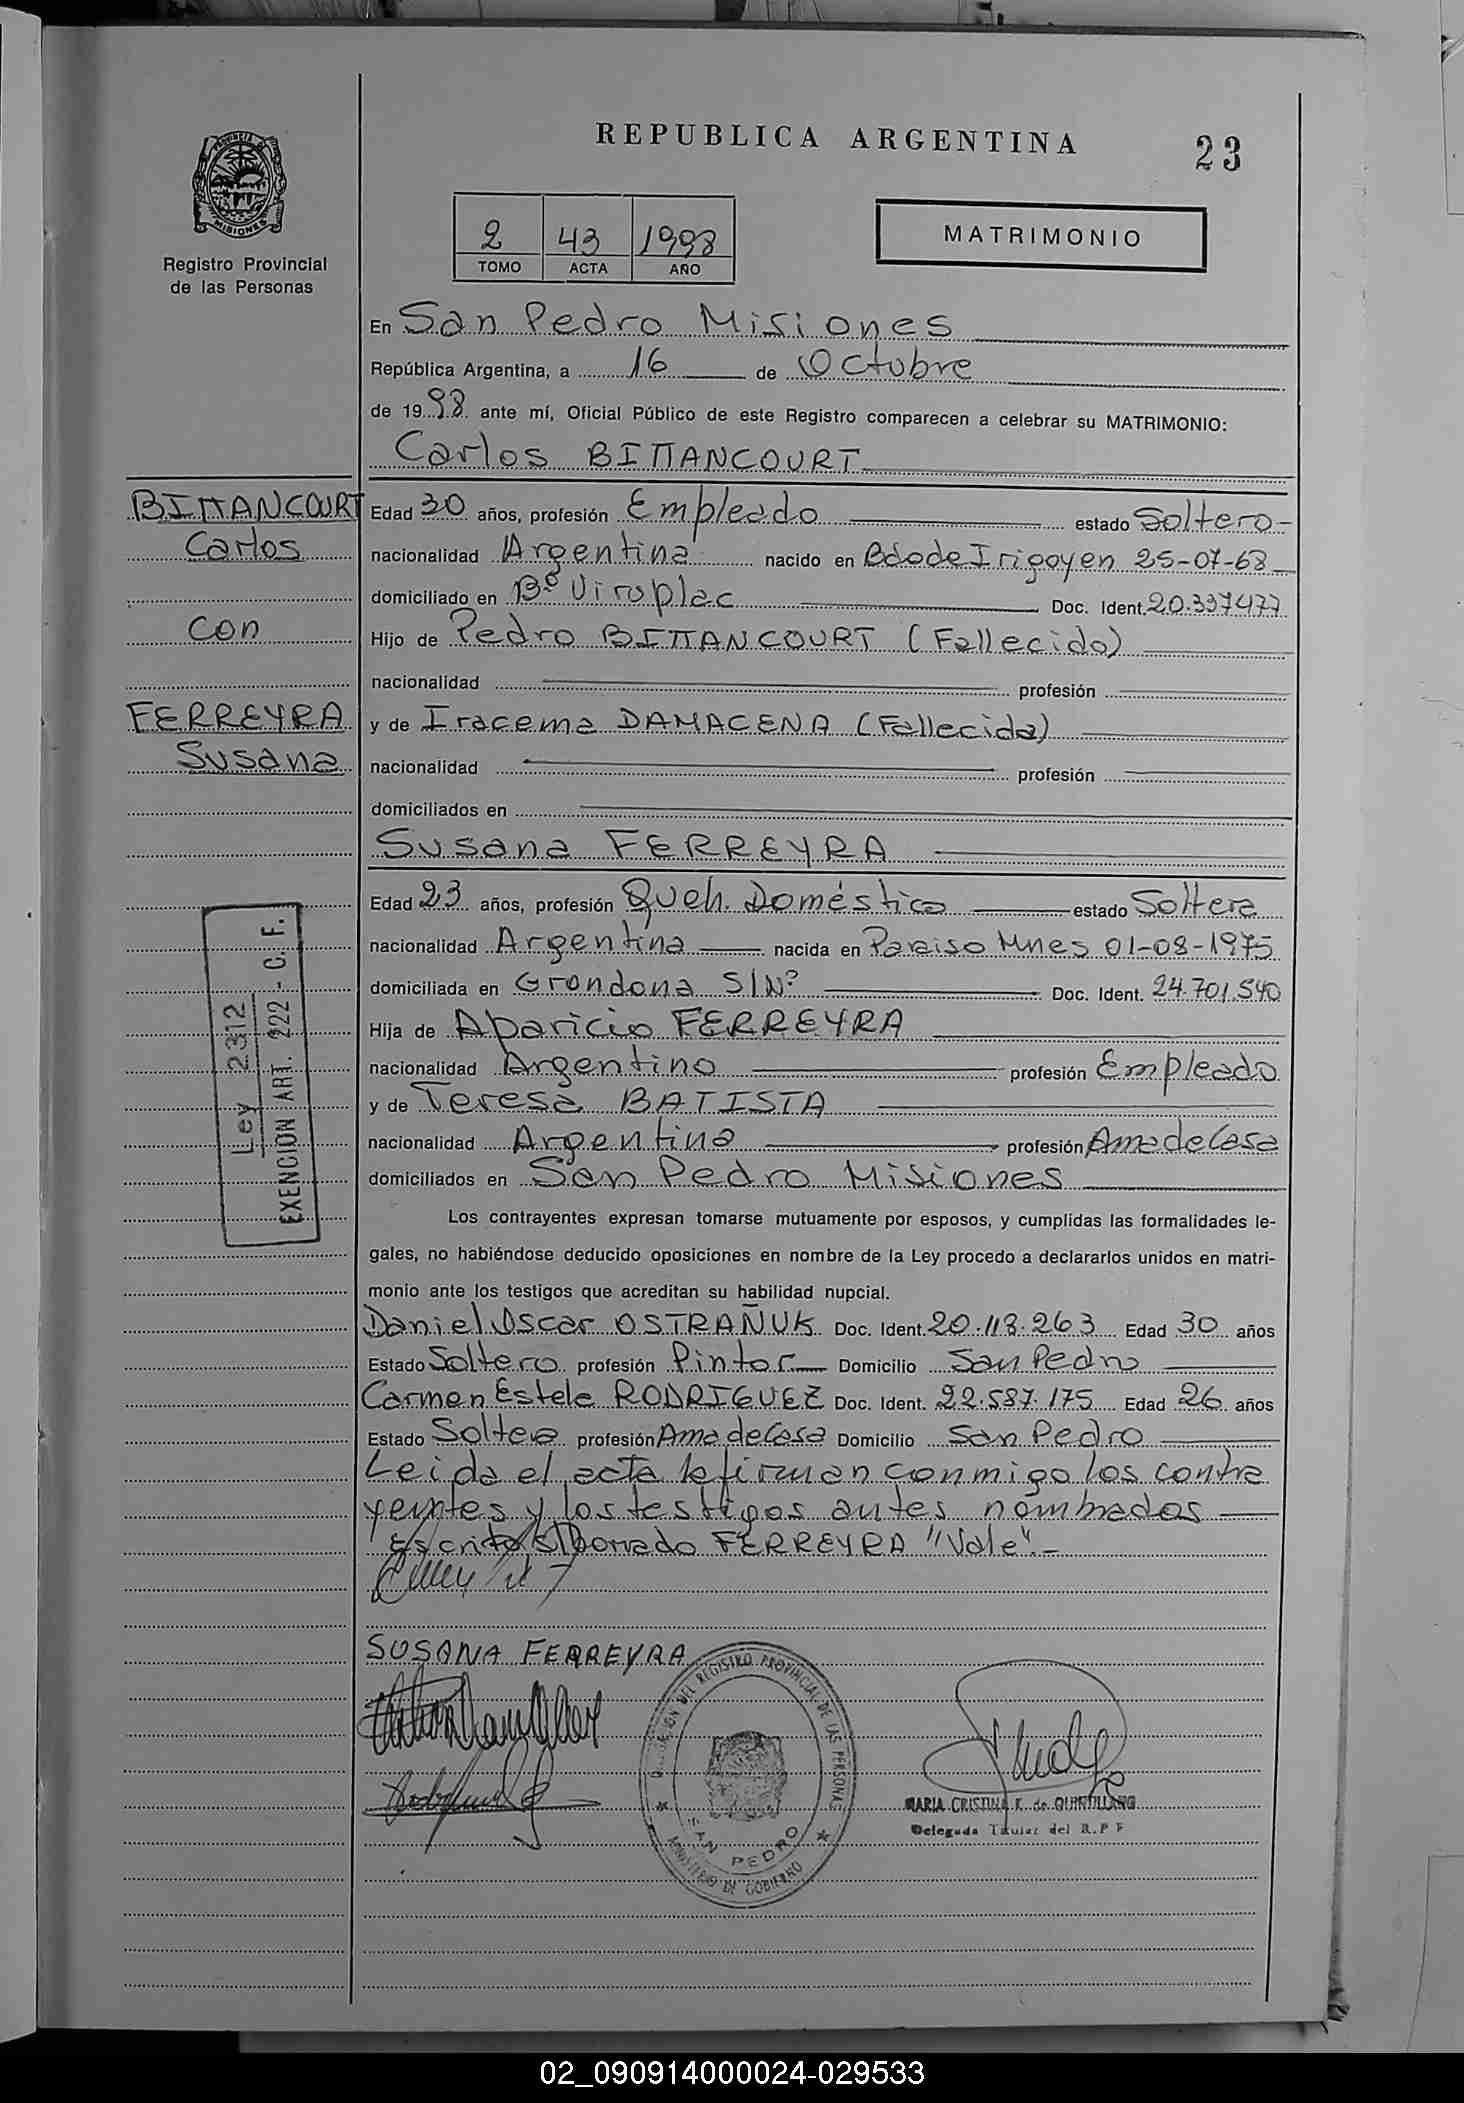 REPUBLICA ARGENTINA
23
PROVINCIA DE
MISIONES
Registro Provincial
de las Personas
2 43 1998
TOMO ACTA AÑO
MATRIMONIO
En San Pedro Misiones
República Argentina, a 16 de Octubre
de 1998 ante mí, Oficial Público de este Registro comparecen a celebrar su MATRIMONIO:
Carlos BITTANCOURT
BITTANCOURT
Carlos
con
FERREYRA
Susana
Edad 30 años, profesión Empleado estado Soltero
nacionalidad Argentina nacido en Bdo de Irigoyen 25-07-68
domiciliado en Bº Viroplac Doc. Ident. 20.337477
Hijo de Pedro BITTANCOURT (Fallecido)
nacionalidad profesión
y de Iracema DAMACENA (Fallecida)
nacionalidad profesión
domiciliados en
Susana FERREYRA
Edad 23 años, profesión Queh. Doméstico estado Soltera
nacionalidad Argentina nacida en Paraiso Mnes 01-08-1975
domiciliada en Grondona S/Nº Doc. Ident. 24.701.540
Hija de Aparicio FERREYRA
nacionalidad Argentino profesión Empleado
y de Teresa BATISTA
nacionalidad Argentina profesión Ama de Casa
domiciliados en San Pedro Misiones
Ley 2312
EXENCION ART. 222 - C. F.
Los contrayentes expresan tomarse mutuamente por esposos, y cumplidas las formalidades le-
gales, no habiéndose deducido oposiciones en nombre de la Ley procedo a declararlos unidos en matri-
monio ante los testigos que acreditan su habilidad nupcial.
Daniel Oscar OSTRAÑUK Doc. Ident. 20.113.263 Edad 30 años
Estado Soltero profesión Pintor Domicilio San Pedro
Carmen Estela RODRIGUEZ Doc. Ident. 22.587.175 Edad 26 años
Estado Soltera profesión Ama de Casa Domicilio San Pedro
Leida el acta la firman conmigo los contra
yentes y los testigos antes nombrados
Escrito s/borrado FERREYRA "Vale".-
SUSANA FERREYRA
DELEGACION DEL REGISTRO PROVINCIAL DE LAS PERSONAS
SAN PEDRO
MINISTERIO DE GOBIERNO
MARIA CRISTINA K. de QUINTILLANO
Delegada Titular del R.P.P
02_090914000024-029533